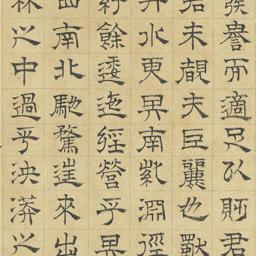 發譽而適足以貶君
君未覩夫巨麗也獨
丹水更其南紫淵徑
紆餘逶迤經營乎其
西南北馳騖往來出
林之中過乎泱漭之